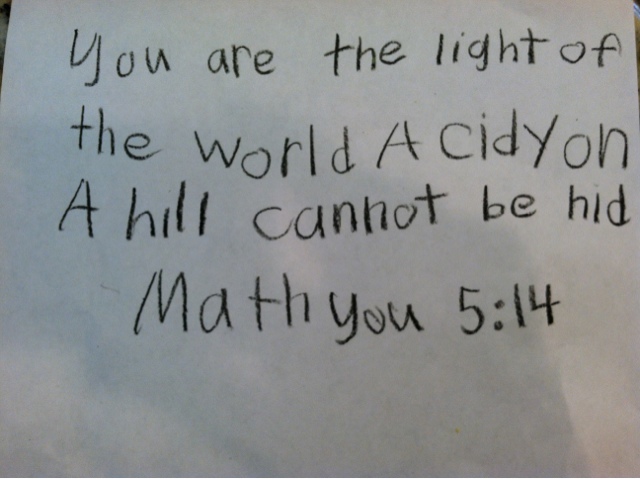 You are the light of
the world A Cidy on
A hill cannot be hid
Mathyou 5:14